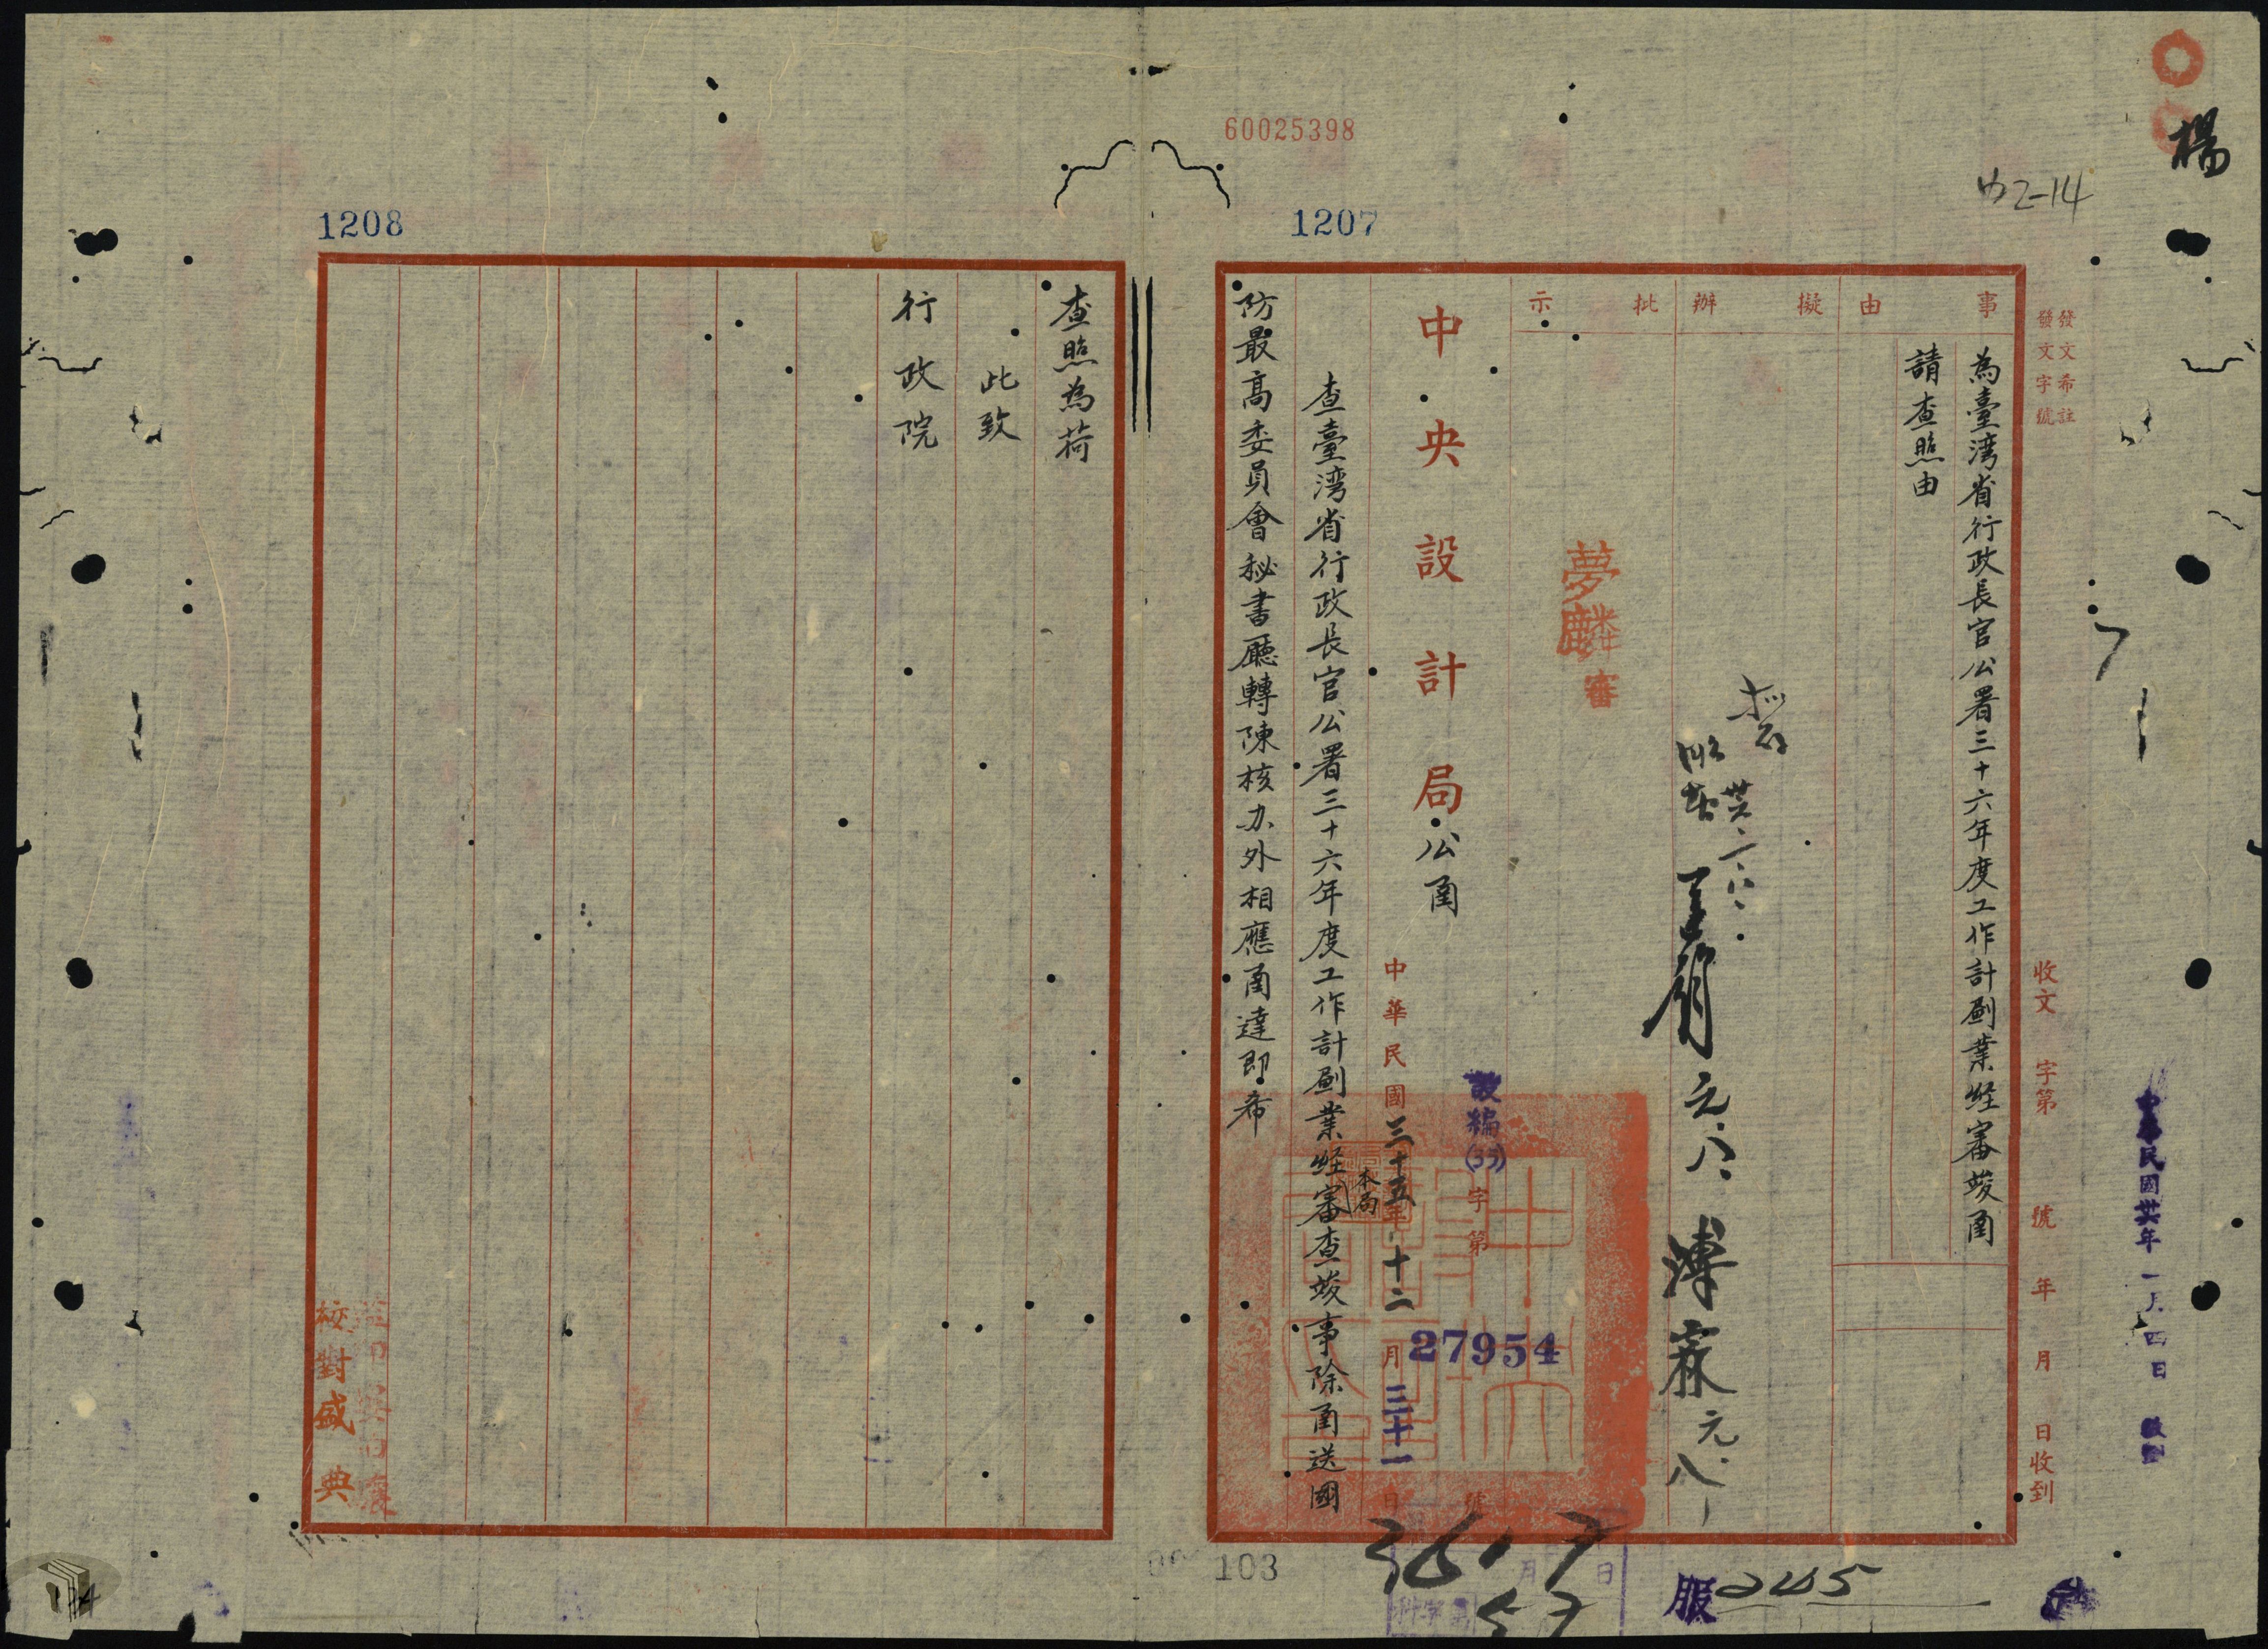 楊
60025398
1207
1208
發文希註
發文字號
收文 字第 號 年 月 日收到
事由
為臺湾省行政長官公署三十六年度工作計劃業経審竣函
請查照由
擬辦
批示
夢麟
審
中央設計局公函
設編(35)字第27954號
中華民國三十五年十二月三十一日
查臺湾省行政長官公署三十六年度工作計劃業経本局審查竣事除函送國
防最高委員會秘書廳轉陳核办外相應函達即希
查照為荷
此致
行政院
校對盛典
民國卅六年一月四日
103
服245